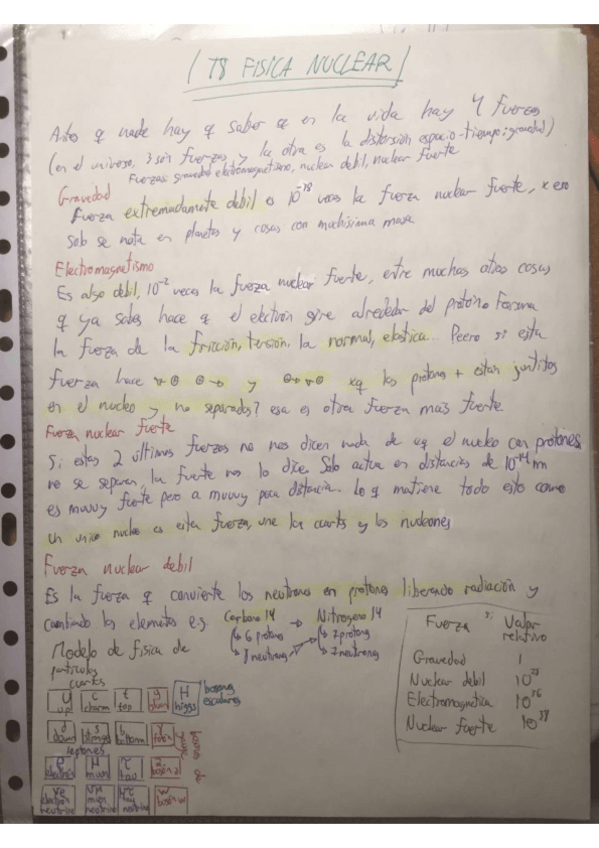 T8 FISICA NUCLEAR
Antes q nada hay q saber q en la vida hay 4 fuerzas
(en el universo, 3 son fuerzas y la otra es la distorsión espacio-tiempo: gravedad)
Fuerzas: gravedad electromagnetismo, nuclear debil, nuclear fuerte
Gravedad
Fuerza extremadamente debil 10⁻³⁸ veces la fuerza nuclear fuerte, x eso
solo se nota en planetas y cosas con muchisima masa
Electromagnetismo
Es algo debil, 10⁻² veces la fuerza nuclear fuerte, entre muchas otras cosas
q ya sabes hace q el electrón gire alrededor del protón. Forma
la fuerza de la fricción, tensión, la normal, elastica... Peero si esta
fuerza hace ←⊕ ⊕→ y ⊖→←⊕ xq los protones + estan juntitos
en el nucleo y no separados? esa es otra fuerza mas fuerte
Fuerza nuclear fuerte
Si estas 2 últimas fuerzas no nos dicen nada de xq el nucleo con protones
no se separan, la fuerte nos lo dice. Solo actua en distancias de 10⁻¹⁴ m
es muuuy fuerte pero a muuuy poca distancia. Lo q mantiene todo esto como
un unico nucleo es esta fuerza, une los cuarks y los nucleones
Fuerza nuclear debil
Es la fuerza q convierte los neutrones en protones liberando radiación y
cambiando los elementos e.g. Carbono 14 → Nitrogeno 14
6 protones 7 protons
8 neutrones 7 neutrones
Fuerza Valor
relativo
Gravedad 1
Nuclear debil 10²⁵
Electromagnetica 10³⁶
Nuclear fuerte 10³⁸
Modelo de fisica de
particulas
cuarks
u c t g H bosones
up charm top gluon higgs escalares
d s b γ
down strange bottom foton
leptones
e μ τ z
electron muon tau boson z
νe νμ ντ w
electron muon tau boson w
neutrino neutrino neutrino